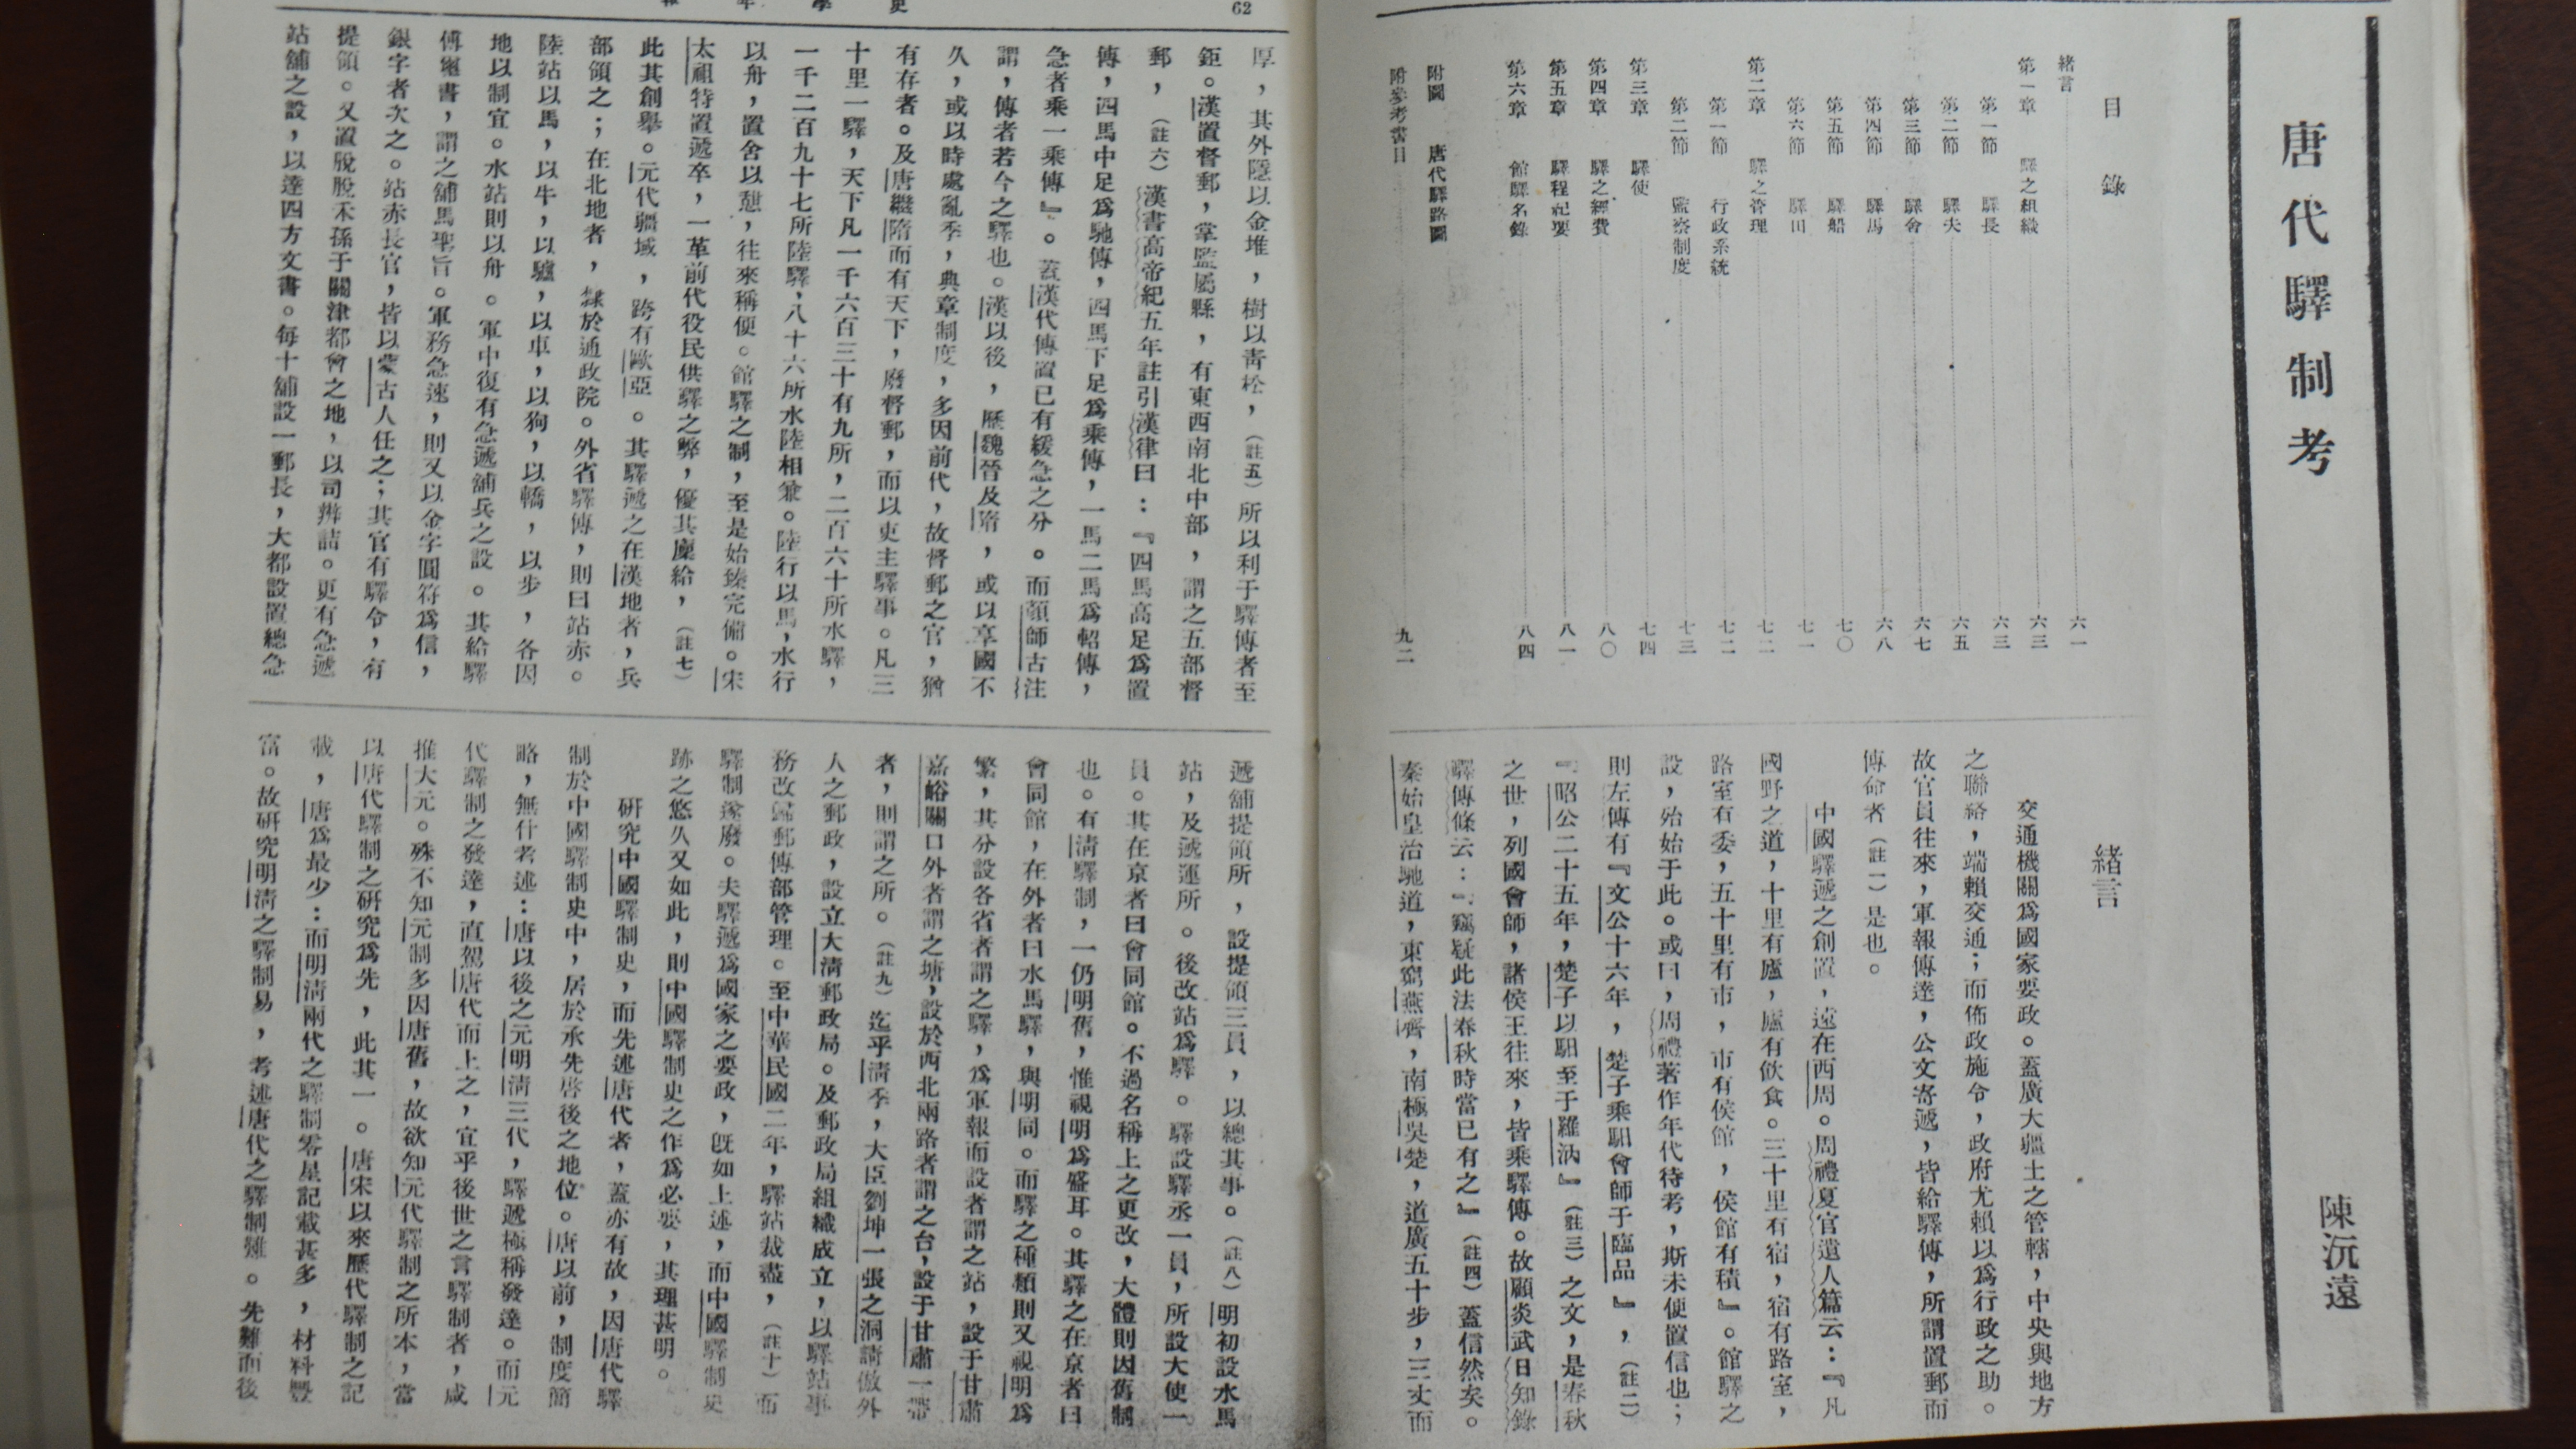 唐代驛制考
陳沅遠
目錄
緒言 六一
第一章 驛之組織 六三
第一節 驛長 六三
第二節 驛夫 六五
第三節 驛舍 六七
第四節 驛馬 六八
第五節 驛船 七〇
第六節 驛田 七一
第二章 驛之管理 七二
第一節 行政系統 七二
第二節 監察制度 七三
第三章 驛使 七四
第四章 驛之經費 八〇
第五章 驛程紀要 八一
第六章 館驛名錄 八四
附圖 唐代驛路圖
附參考書目 九二
緒言
交通機關為國家要政。蓋廣大疆土之管轄,中央與地方
之聯絡,端賴交通;而佈政施令,政府尤賴以為行政之助。
故官員往來,軍報傳達,公文寄遞,皆給驛傳,所謂置郵而
傳命者(註一)是也。
中國驛遞之創置,遠在西周。周禮夏官遺人篇云:『凡
國野之道,十里有廬,廬有飲食。三十里有宿,宿有路室,
路室有委,五十里有市,市有侯館,侯館有積』。館驛之
設,殆始于此。或曰,周禮著作年代待考,斯未便置信也;
則左傳有『文公十六年,楚子乘馹會師于臨品』,(註二)
『昭公二十五年,楚子以馹至于羅汭』(註三)之文,是春秋
之世,列國會師,諸侯王往來,皆乘驛傳。故顧炎武日知錄
驛傳條云:『竊疑此法春秋時當已有之』(註四)蓋信然矣。
秦始皇治馳道,東窮燕齊,南極吳楚,道廣五十步,三丈而
62
史學年報
厚,其外隱以金堆,樹以靑松,(註五)所以利于驛傳者至
鉅。漢置督郵,掌監屬縣,有東西南北中部,謂之五部督
郵,(註六)漢書高帝紀五年註引漢律曰:『四馬高足為置
傳,四馬中足為馳傳,四馬下足為乘傳,一馬二馬為軺傳,
急者乘一乘傳』。蓋漢代傳置已有緩急之分。而顏師古注
謂,傳者若今之驛也。漢以後,歷魏晉及隋,或以享國不
久,或以時處亂季,典章制度,多因前代,故督郵之官,猶
有存者。及唐繼隋而有天下,廢督郵,而以吏主驛事。凡三
十里一驛,天下凡一千六百三十有九所,二百六十所水驛,
一千二百九十七所陸驛,八十六所水陸相兼。陸行以馬,水行
以舟,置舍以憩,往來稱便。館驛之制,至是始臻完備。宋
太祖特置遞卒,一革前代役民供驛之弊,優其廩給,(註七)
此其創舉。元代疆域,跨有歐亞。其驛遞之在漢地者,兵
部領之;在北地者,隸於通政院。外省驛傳,則曰站赤。
陸站以馬,以牛,以驢,以車,以狗,以轎,以步,各因
地以制宜。水站則以舟。軍中復有急遞舖兵之設。其給驛
傳璽書,謂之舖馬聖旨。軍務急速,則又以金字圓符為信,
銀字者次之。站赤長官,皆以蒙古人任之;其官有驛令,有
提領。又置脫脫禾孫于關津都會之地,以司辨詰。更有急遞
站舖之設,以達四方文書。每十舖設一郵長,大都設置總急
遞舖提領所,設提領三員,以總其事。(註八)明初設水馬
站,及遞運所。後改站為驛。驛設驛丞一員,所設大使一
員。其在京者曰會同館。不過名稱上之更改,大體則因舊制
也。有清驛制,一仍明舊,惟視明為盛耳。其驛之在京者曰
會同館,在外者曰水馬驛,與明同。而驛之種類則又視明為
繁,其分設各省者謂之驛,為軍報而設者謂之站,設于甘肅
嘉峪關口外者謂之塘,設於西北兩路者謂之台,設于甘肅一帶
者,則謂之所。(註九)迄乎清季,大臣劉坤一張之洞請倣外
人之郵政,設立大清郵政局。及郵政局組織成立,以驛站事
務改歸郵傳部管理。至中華民國二年,驛站裁盡,(註十)而
驛制遂廢。夫驛遞為國家之要政,旣如上述,而中國驛制史
跡之悠久又如此,則中國驛制史之作為必要,其理甚明。
研究中國驛制史,而先述唐代者,蓋亦有故,因唐代驛
制於中國驛制史中,居於承先啓後之地位。唐以前,制度簡
略,無什考述:唐以後之元明清三代,驛遞極稱發達。而元
代驛制之發達,直駕唐代而上之,宜乎後世之言驛制者,咸
推大元。殊不知元制多因唐舊,故欲知元代驛制之所本,當
以唐代驛制之研究為先,此其一。唐宋以來歷代驛制之記
載,唐為最少:而明清兩代之驛制零星記載甚多,材料豐
富。故研究明清之驛制易,考述唐代之驛制難。先難而後